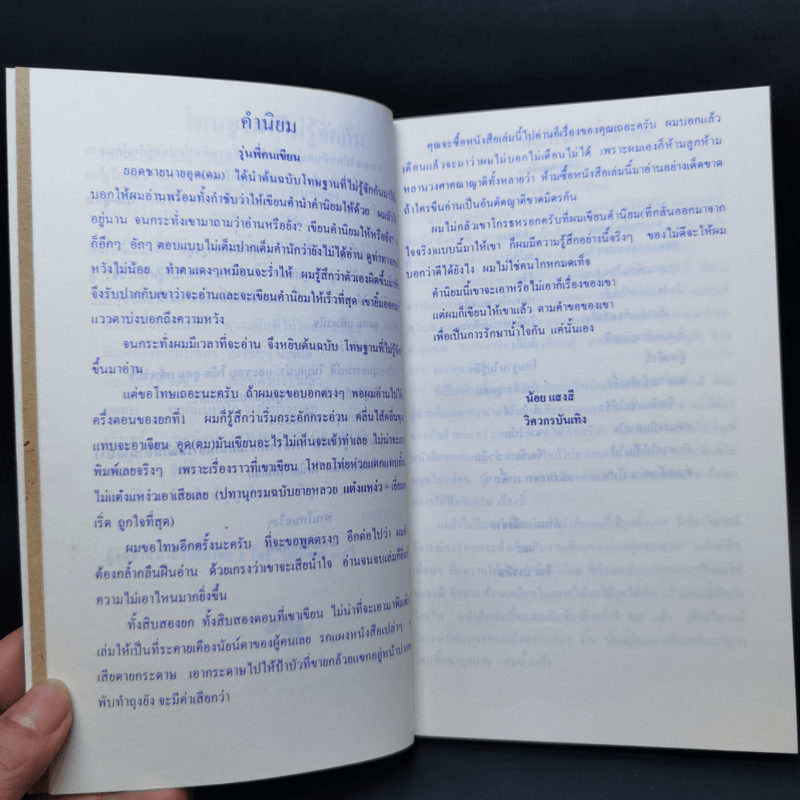 คำนิยม
วุ่นพี่คนเขียน
ยอดชายนายอุด(คม) ได้นำต้นฉบับโทษฐานที่ไม่รู้จักกันมาให้
บอกให้ผมอ่านพร้อมทั้งกำชับว่าให้เขียนคำนำคำนิยมให้ด้วย
อยู่นาน จนกระทั่งเขามาถามว่าอ่านหรือยัง? เขียนคำนิยมให้หรือยัง?
ก็อึกๆ อักๆ ตอบแบบไม่เต็มปากเต็มคำนักว่ายังไม่ได้อ่าน
หวังไม่น้อย ทำตาแดงๆเหมือนจะร่ำไห้ ผมรู้สึกว่าตัวเองผิดขึ้นมา
จึงรับปากกับเขาว่าจะอ่านและจะเขียนคำนิยมให้เร็วที่สุด เขายิ้มออก
แววตาบ่งบอกถึงความหวัง
จนกระทั่งผมมีเวลาที่จะอ่าน จึงหยิบต้นฉบับ โทษฐานที่ไม่รู้จัก
ขึ้นมาอ่าน
แต่ขอโทษเถอะนะครับ ถ้าผมจะขอบอกตรงๆ พอผมอ่านไปได้
ครึ่งตอนของยกที่1 ผมก็รู้สึกว่าเริ่มกระอักกระอ่วน คลื่นไส้คลื่น
แทบจะอาเจียน อุด(คม)มันเขียนอะไรไม่เห็นจะเข้าท่าเลย ไม่น่าจะ
พิมพ์เลยจริงๆ เพราะเรื่องราวที่เขาเขียน โหลยโท่ยห่วยแตกแทบทั้ง
ไม่แต๋งแหง่วเอาเสียเลย (ปทานุกรมฉบับยายหลวย แต๋งแหง่ว = เยี่ยม
เริ่ด ถูกใจที่สุด)
ผมขอโทษอีกครั้งนะครับ ที่จะขอพูดตรงๆ อีกต่อไปว่า
ต้องกล้ำกลืนฝืนอ่าน ด้วยเกรงว่าเขาจะเสียน้ำใจ อ่านจนจบเล่มก็ยิ่ง
ความไม่เอาไหนมากยิ่งขึ้น
ทั้งสิบสองยก ทั้งสิบสองตอนที่เขาเขียน ไม่น่าที่จะเอามาพิมพ์
เล่มให้เป็นที่ระคายเคืองนัยน์ตาของผู้คนเลย รกแผงหนังสือเปล่าๆ
เสียดายกระดาษ เอากระดาษไปให้ป้าบัวที่ขายกล้วยแขกอยู่หน้าปาก
พับทำถุงยัง จะมีค่าเสียกว่า
คุณจะซื้อหนังสือเล่มนี้ไปอ่านก็เรื่องของคุณเถอะครับ ผมบอกแล้ว
เตือนแล้วจะมาว่าผมไม่บอกไม่เตือนไม่ได้ เพราะผมเองก็ห้ามลูกห้าม
หลานวงศาคณาญาติทั้งหลายว่า ห้ามซื้อหนังสือเล่มนี้มาอ่านอย่างเด็ดขาด
ถ้าใครขืนอ่านเป็นอันตัดญาติขาดมิตรกัน
ผมไม่กลัวเขาโกรธหรอกครับที่ผมเขียนคำนิยม(ที่กลั่นออกมาจาก
ใจจริง)แบบนี้มาให้เขา ก็ผมมีความรู้สึกอย่างนี้จริงๆ ของไม่ดีจะให้ผม
บอกว่าดีได้ยังไง ผมไม่ใช่คนโกหกมดเท็จ
คำนิยมนี้เขาจะเอาหรือไม่เอาก็เรื่องของเขา
แต่ผมก็เขียนให้เขาแล้ว ตามคำขอของเขา
เพื่อเป็นการรักษาน้ำใจกัน แค่นั้นเอง
น้อย แสงสี
วิศวกรบันเทิง